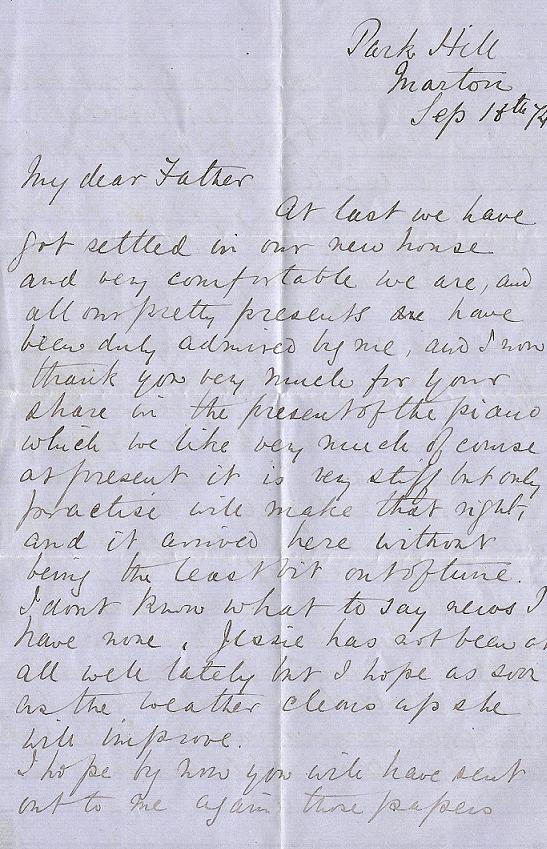 Park Hill
Marton
Sep 18th
My dear Father
At last we have
got settled in our new house
and very comfortable we are, and
all our pretty presents have
been duly admired by me, and I now
thank you very much for your
share in the present of the piano
which we like very much of course
at present it is very stiff but only
practise will make that right,
and it arrived here without
being the least bit out of tune.
I dont know what to say news I
have none. Jessie has not been at
all well lately but I hope as soon
as the weather clears up she
will improve.
I hope by now you will have sent
out to me again those papers